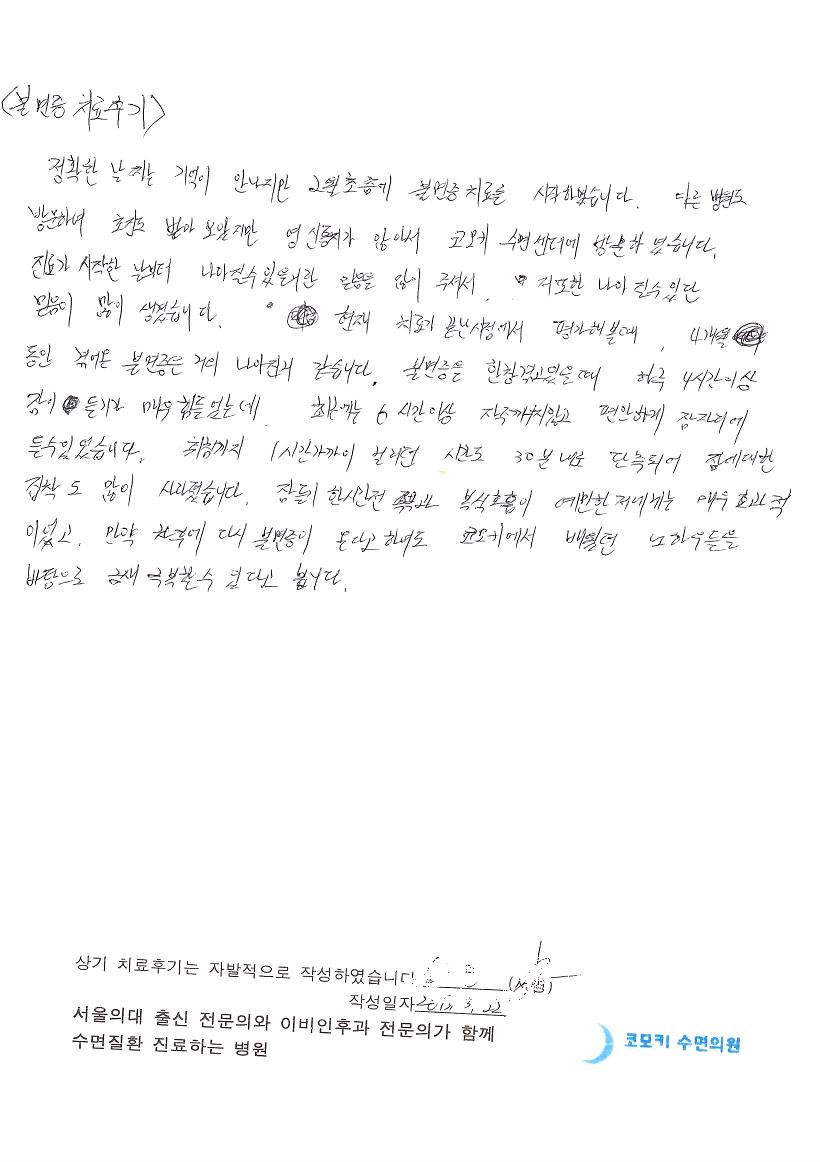 <불면증 치료후기>
정확한 날짜는 기억이 안나지만 2월초쯤에 불면증 치료를 시작하였습니다. 다른 병원도
방문하여 조건도 받아 보았지만 영 신통치가 않아서 코모키 수면센터에 방문하였습니다.
진료가 시작한 날부터 나아질수있을거란 믿음을 많이 주셔서, 저또한 나아질수있단
믿음이 많이 생겼습니다. 현재 치료가 끝난시점에서 평가해볼때, 4개월
동안 겪어온 불면증은 거의 나아진거 같습니다. 불면증을 한창겪고있을때 하루 4시간이상
잠이 들기가 매우 힘들었는데 최근에는 6시간이상 자주깨지않고 편안하게 잠자리에
들수있었습니다. 취침까지 1시간가까이 걸리던 시간도 30분내로 단축되어 잠에대한
집착도 많이 사라졌습니다. 잠들기 한시간전 복식호흡이 예민한 저에게는 매우 효과적
이었고, 만약 차후에 다시 불면증이 온다고 하여도 코모키에서 배웠던 노하우들을
바탕으로 금새 극복할수 있다고 봅니다.
상기 치료후기는 자발적으로 작성하였습니다
작성일자 3. 22
서울의대 출신 전문의와 이비인후과 전문의가 함께
수면질환 진료하는 병원
코모키 수면의원